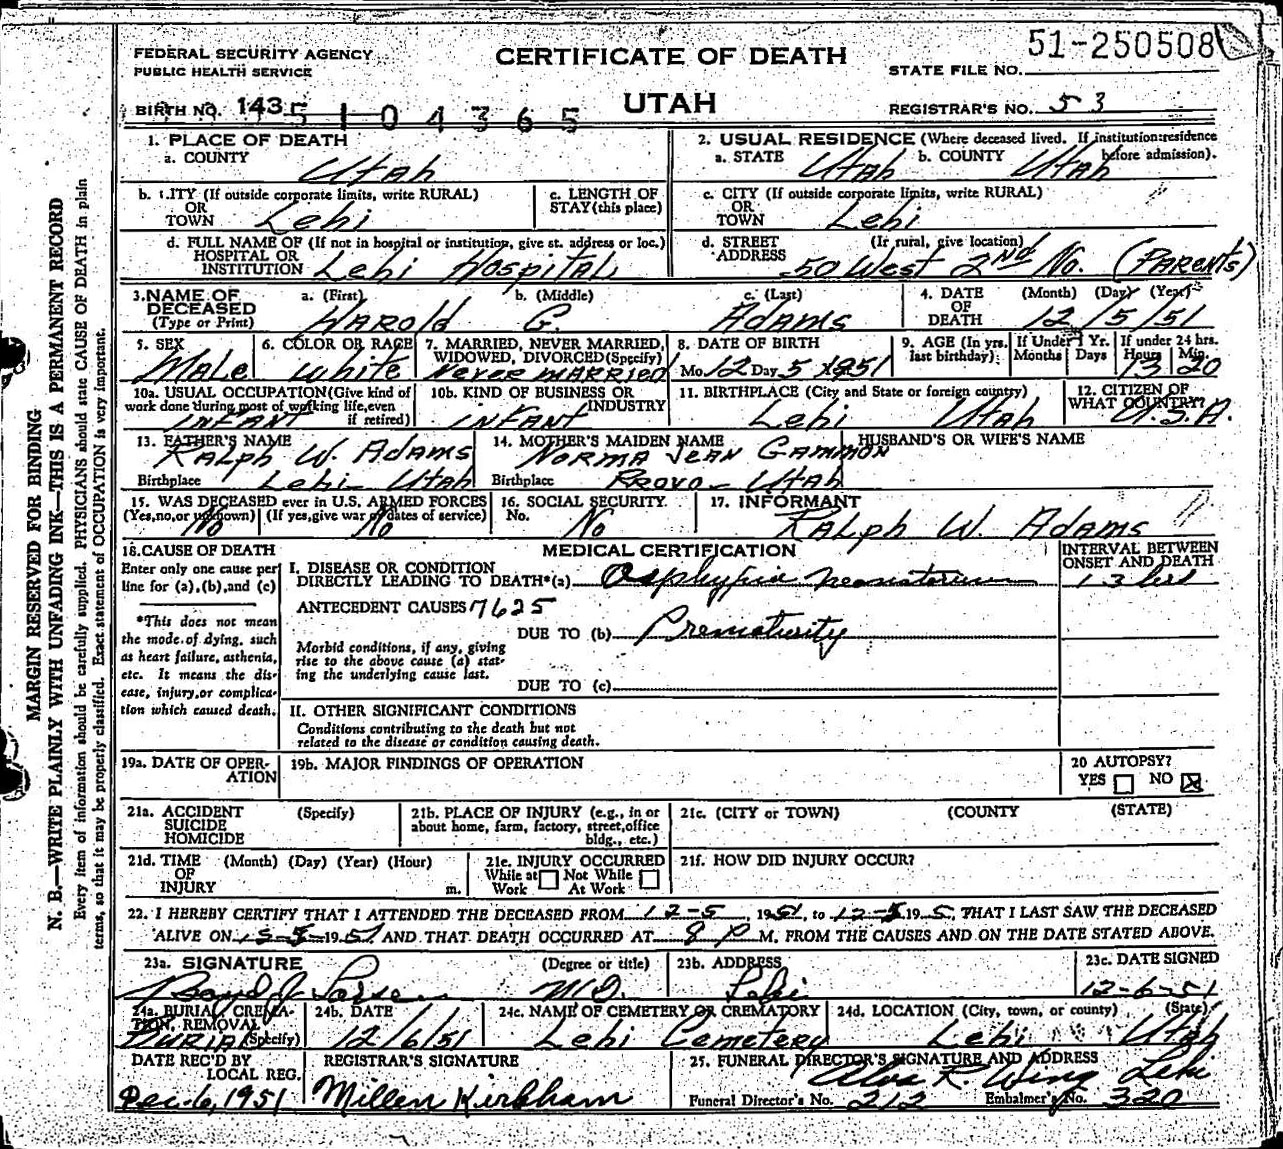 51-250508
FEDERAL SECURITY AGENCY
PUBLIC HEALTH SERVICE
CERTIFICATE OF DEATH
STATE FILE NO.
BIRTH NO. 143 51 04365
UTAH
REGISTRAR'S NO. 53
1. PLACE OF DEATH
a. COUNTY Utah
2. USUAL RESIDENCE (Where deceased lived. If institution: residence before admission).
a. STATE Utah b. COUNTY Utah
b. CITY (If outside corporate limits, write RURAL)
OR
TOWN Lehi
c. LENGTH OF
STAY (this place)
c. CITY (If outside corporate limits, write RURAL)
OR
TOWN Lehi
d. FULL NAME OF (If not in hospital or institution, give st. address or loc.)
HOSPITAL OR
INSTITUTION Lehi Hospital
d. STREET (If rural, give location)
ADDRESS 50 West 2nd No. (Parents)
3. NAME OF
DECEASED
(Type or Print)
a. (First) Harold
b. (Middle) G.
c. (Last) Adams
4. DATE
OF
DEATH
(Month) (Day) (Year)
12/5/51
5. SEX
Male
6. COLOR OR RACE
White
7. MARRIED, NEVER MARRIED,
WIDOWED, DIVORCED (Specify)
Never married
8. DATE OF BIRTH
Mo. 12 Day 5 1951
9. AGE (In yrs.
last birthday)
If Under 1 Yr.
Months Days
If under 24 hrs.
Hours Min.
13 20
10a. USUAL OCCUPATION (Give kind of
work done during most of working life, even
if retired)
INFANT
10b. KIND OF BUSINESS OR
INDUSTRY
INFANT
11. BIRTHPLACE (City and State or foreign country)
Lehi Utah
12. CITIZEN OF
WHAT COUNTRY?
U.S.A.
13. FATHER'S NAME
Ralph W. Adams
Birthplace Lehi - Utah
14. MOTHER'S MAIDEN NAME
Norma Jean Gammon
Birthplace Provo - Utah
HUSBAND'S OR WIFE'S NAME
15. WAS DECEASED ever in U.S. ARMED FORCES
(Yes, no, or unknown) (If yes, give war or dates of service)
No No
16. SOCIAL SECURITY
No. No
17. INFORMANT
Ralph W. Adams
18. CAUSE OF DEATH
Enter only one cause per
line for (a), (b), and (c)
*This does not mean
the mode of dying, such
as heart failure, asthenia,
etc. It means the dis-
ease, injury, or complica-
tion which caused death.
MEDICAL CERTIFICATION
INTERVAL BETWEEN
ONSET AND DEATH
I. DISEASE OR CONDITION
DIRECTLY LEADING TO DEATH*(a) Asphyxia neonatorium 13 hrs
ANTECEDENT CAUSES 7625
DUE TO (b) Prematurity
Morbid conditions, if any, giving
rise to the above cause (a) stat-
ing the underlying cause last.
DUE TO (c)
II. OTHER SIGNIFICANT CONDITIONS
Conditions contributing to the death but not
related to the disease or condition causing death.
19a. DATE OF OPER-
ATION
19b. MAJOR FINDINGS OF OPERATION
20 AUTOPSY?
YES NO
21a. ACCIDENT (Specify)
SUICIDE
HOMICIDE
21b. PLACE OF INJURY (e.g., in or
about home, farm, factory, street, office
bldg., etc.)
21c. (CITY or TOWN) (COUNTY) (STATE)
21d. TIME (Month) (Day) (Year) (Hour)
OF
INJURY m.
21e. INJURY OCCURRED
While at Not While
Work At Work
21f. HOW DID INJURY OCCUR?
22. I HEREBY CERTIFY THAT I ATTENDED THE DECEASED FROM 12-5, 1951, to 12-5 195, THAT I LAST SAW THE DECEASED
ALIVE ON 12-5-1951 AND THAT DEATH OCCURRED AT 8 P M. FROM THE CAUSES AND ON THE DATE STATED ABOVE.
23a. SIGNATURE (Degree or title)
Boyd J Larsen M.D.
23b. ADDRESS
Lehi
23c. DATE SIGNED
12-6-51
24a. BURIAL, CREMA-
TION, REMOVAL
(Specify)
Burial
24b. DATE
12/6/51
24c. NAME OF CEMETERY OR CREMATORY
Lehi Cemetery
24d. LOCATION (City, town, or county) (State)
Lehi Utah
DATE REC'D BY
LOCAL REG.
Dec. 6, 1951
REGISTRAR'S SIGNATURE
Millen Kirkham
25. FUNERAL DIRECTOR'S SIGNATURE AND ADDRESS
Alva R. Wing Lehi
Funeral Director's No. 212 Embalmer's No. 320
MARGIN RESERVED FOR BINDING
N. B.—WRITE PLAINLY WITH UNFADING INK—THIS IS A PERMANENT RECORD
Every item of information should be carefully supplied. PHYSICIANS should state CAUSE OF DEATH in plain
terms, so that it may be properly classified. Exact statement of OCCUPATION is very important.